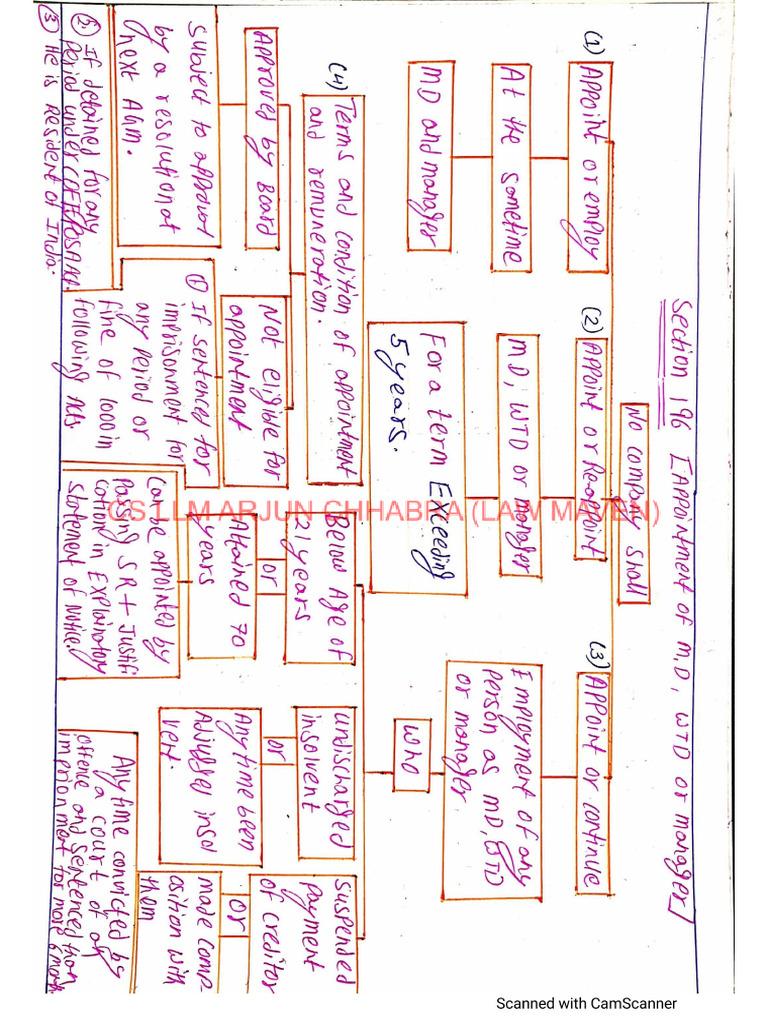 Section 196 [Appointment of M.D, WTD or manager]
No company shall
(1) Appoint or employ
At the sametime
MD and manager
(2) Appoint or Reappoint
MD, WTD or manager
For a term Exceeding
5 years.
(3) Appoint or continue
Employment of any
person as MD, WTD
or manager
who
Below Age of
21 years
or
Attained 70
years
Can be appointed by
passing SR + Justifi
cation in Explainatory
statement of Notice.
undischarged
insolvent
or
Any time been
Adjudged insol
vent.
suspended
payment
of creditor
or
made comp-
osition with
them
Any time convicted by
a court of an
offence and sentenced
imprionment for more 6 month
(4) Terms and condition of appointment
and remuneration.
Approved by Board
subject to approval
by a resolution at
next AGM.
Not eligible for
appointment
① If sentenced for
imprisonment for
any period or
fine of 1000 in
following Acts
② If detained for any
period under COFEPOSA
③ He is Resident of India.
CS LLM ARJUN CHHABRA (LAW MAVEN)
Scanned with CamScanner